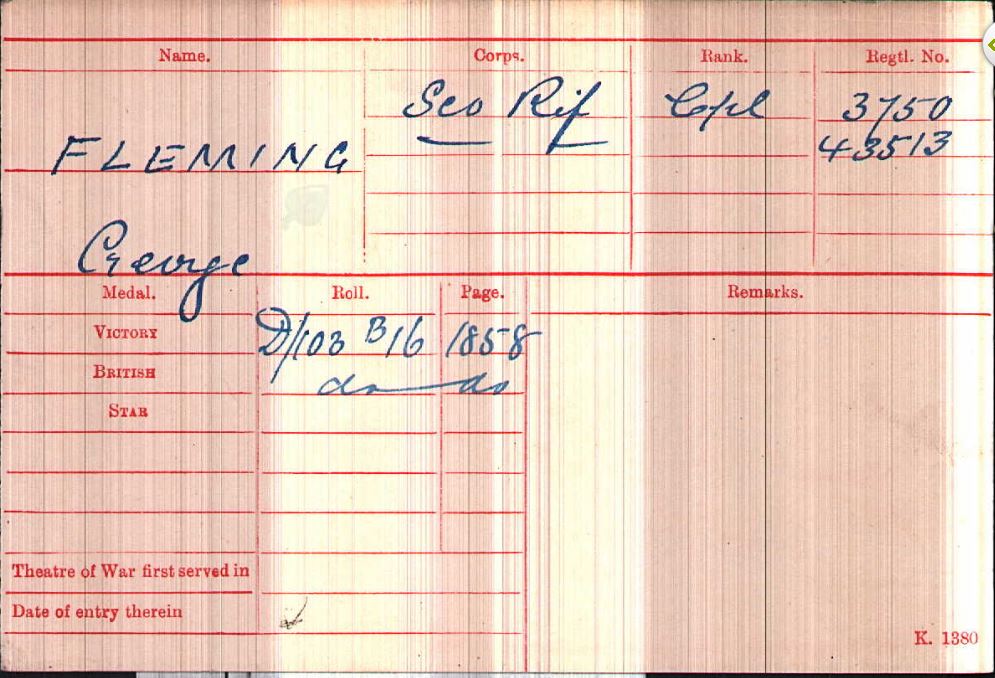 Name. Corps. Rank. Regtl. No.
Sco Rif Cpl 3750
FLEMING 43513
George
Medal. Roll. Page. Remarks.
VICTORY D/103 B16 1858
BRITISH do do
STAR
Theatre of War first served in
Date of entry therein
K. 1380